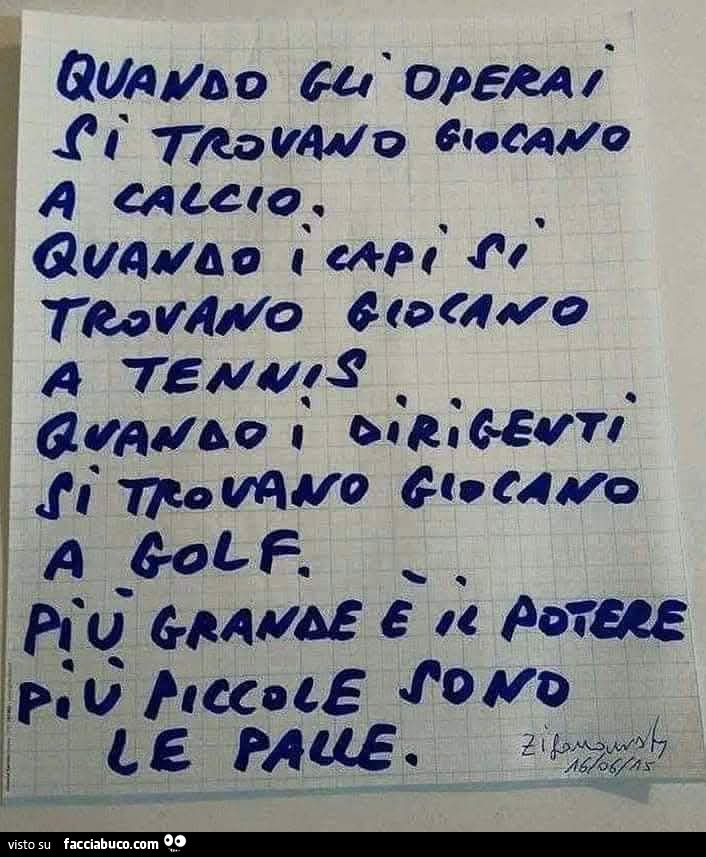 QUANDO GLI OPERAI
SI TROVANO GIOCANO
A CALCIO.
QUANDO I CAPI SI
TROVANO GIOCANO
A TENNIS
QUANDO I DIRIGENTI
SI TROVANO GIOCANO
A GOLF.
PIÙ GRANDE È IL POTERE
PIÙ PICCOLE SONO
LE PALLE.
16/06/15
visto su facciabuco.com